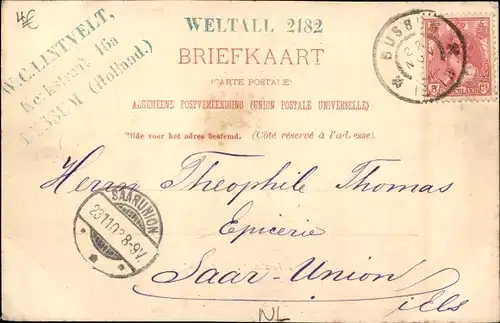 4€
W.C. LINTVELT,
Kerkstraat 16a
(Holland.)
WELTALL 2182
BRIEFKAART
(CARTE POSTALE)
ALGEMEENE POSTVEREENIGING (UNION POSTALE UNIVERSELLE)
Zijde voor het adres bestemd. (Côté réservé à l'adresse.)
BUSSUM
Herrn Theophile Thomas
Epicerie
Saar-Union
Els
SAARUNION
23.11.03 8-9V.
NL